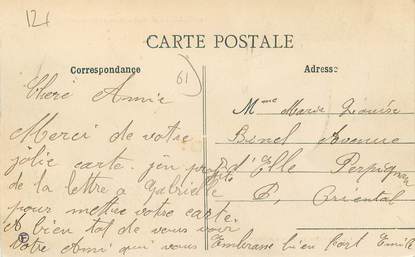 12f
CARTE POSTALE
Correspondance
Adresse
61
Chere Amie
Merci de votre
jolie carte. j'en profite
de la lettre a Gabrielle
pour mettre votre carte.
A bien tot de vous voir
Votre Ami qui vous Embrasse bien fort Emile
Mme Marie Louise
Avenue
d'Elle Perpignan
P. Oriental